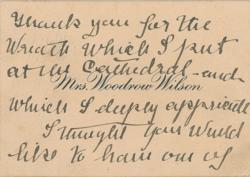 Thank you for the
Wreath which I put
at the Cathedral - and
Mrs. Woodrow Wilson
which I deeply appreciate
I thought you would
like to have one of